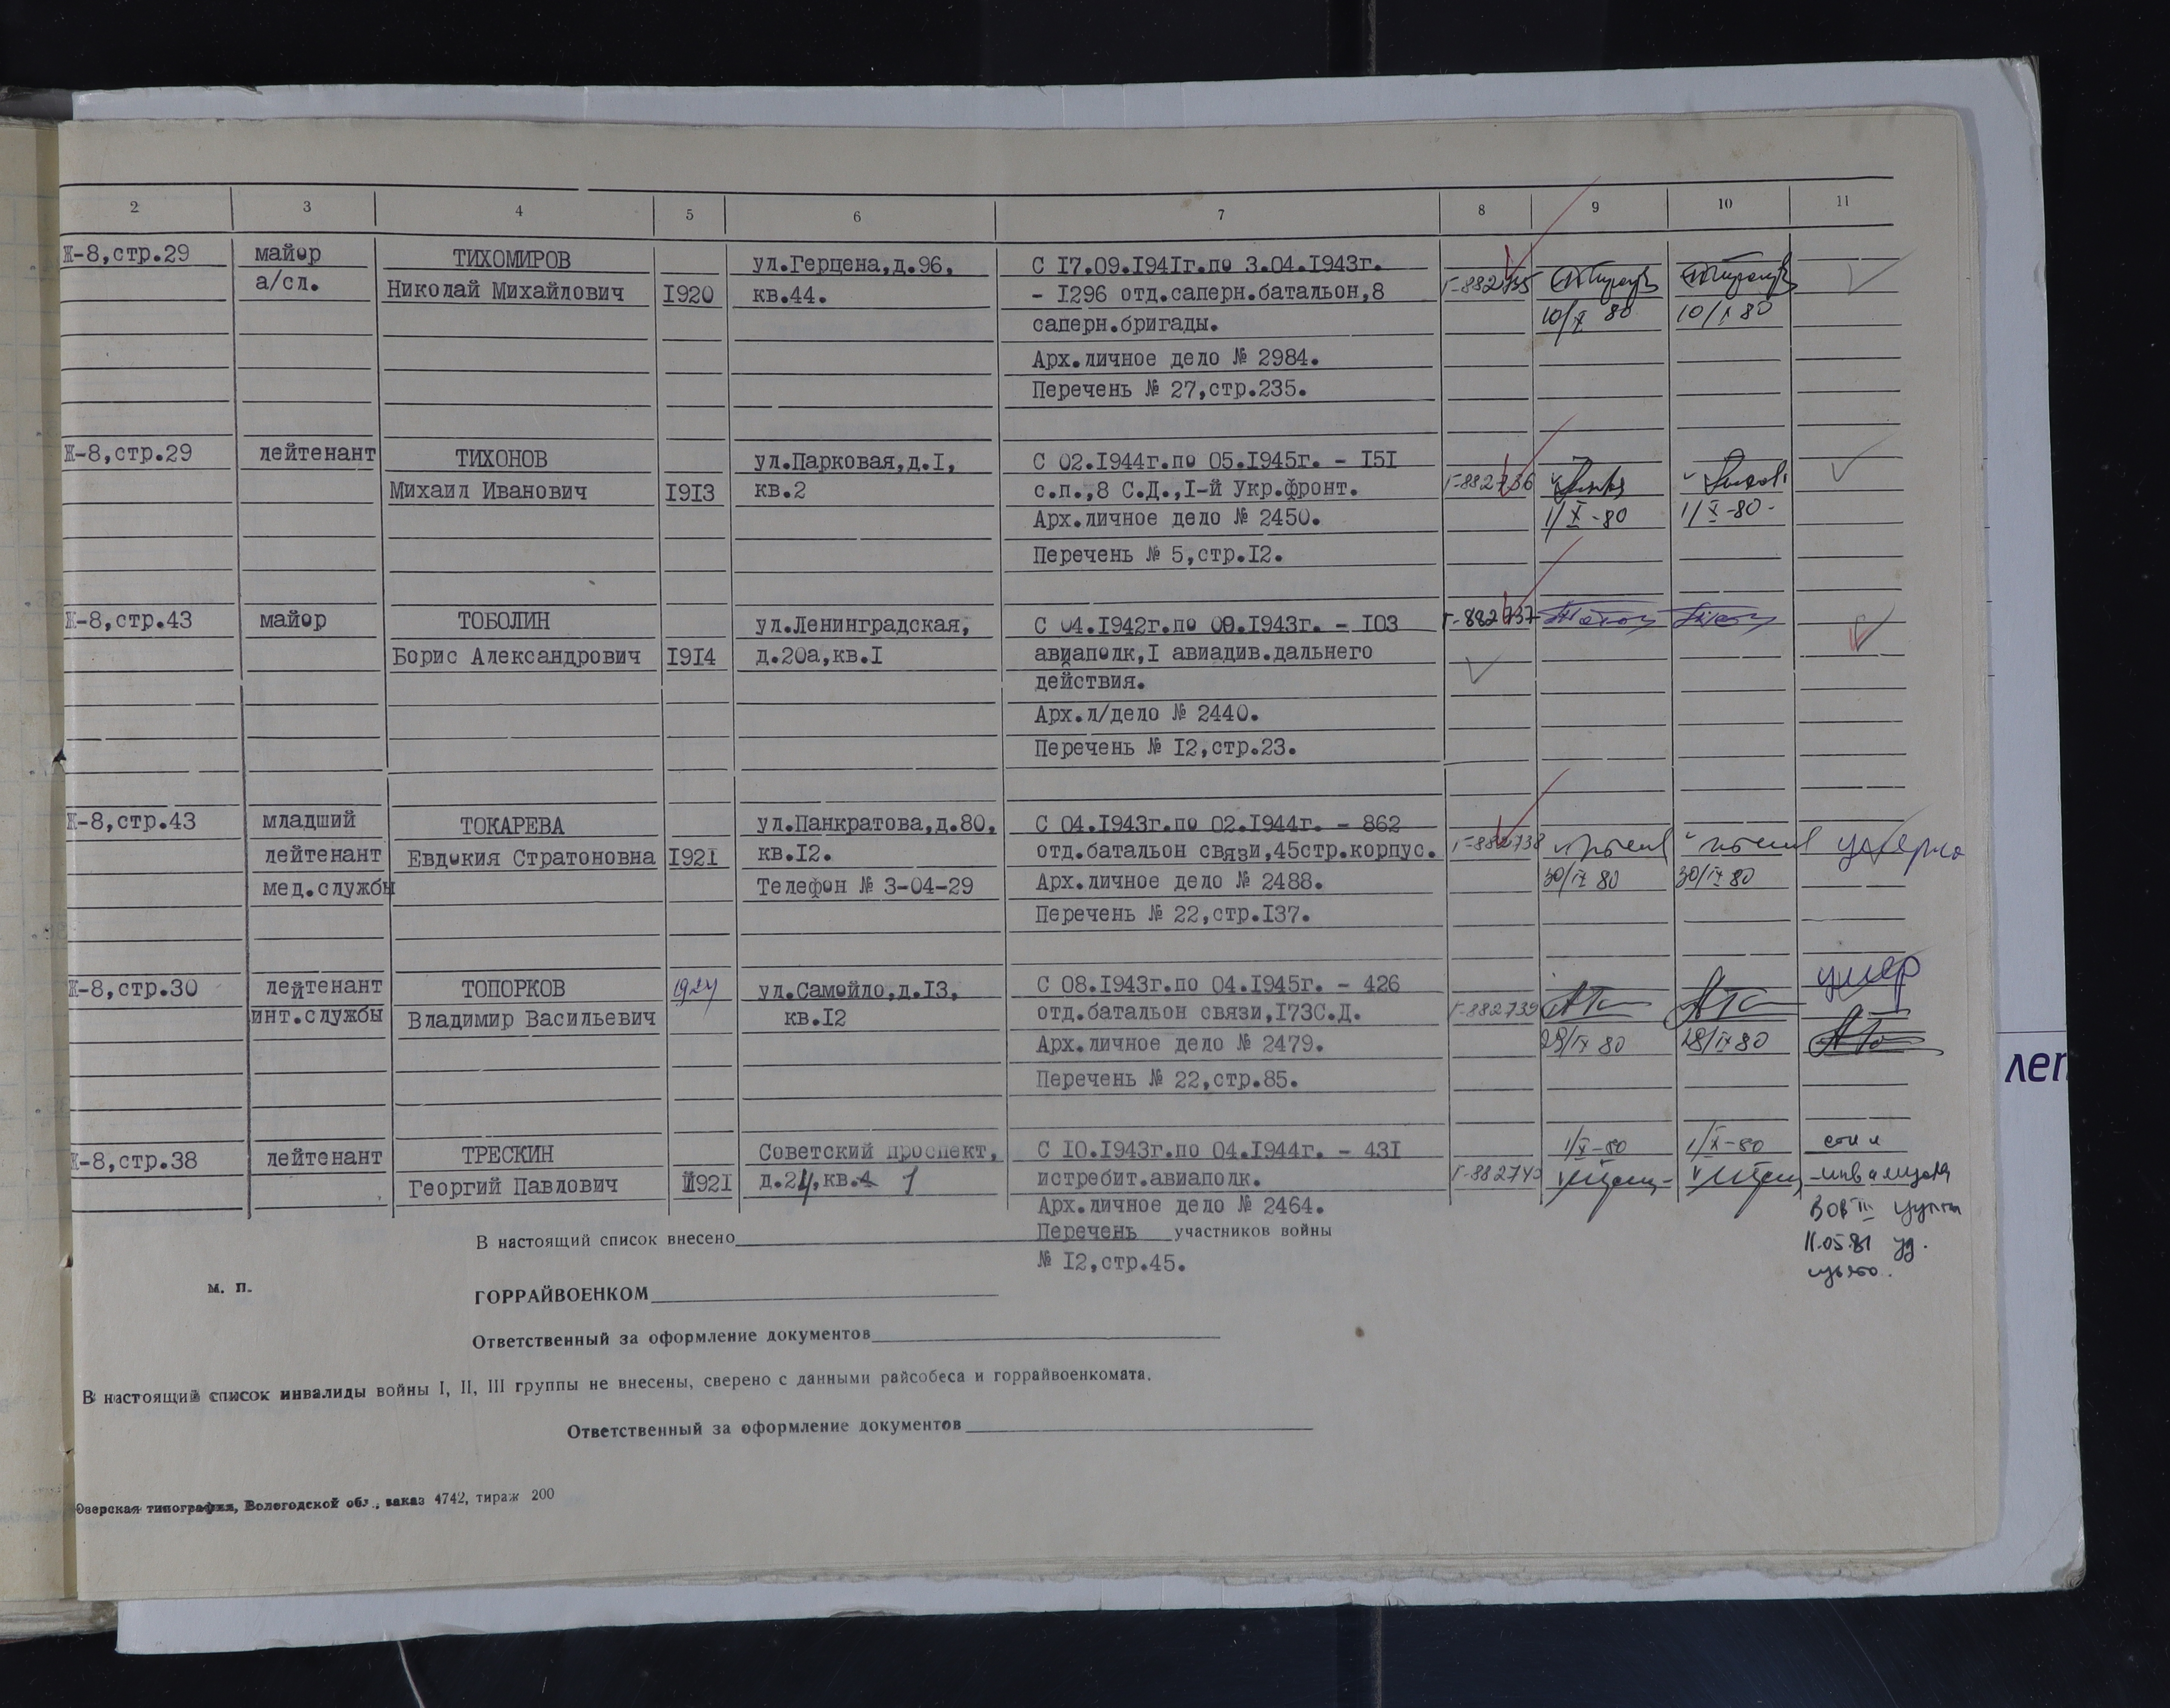 2 3 4 5 6 7 8 9 10 11
Ж-8,стр.29 майор ТИХОМИРОВ ул.Герцена,д.96, С I7.09.I94Iг.по 3.04.I943г.
а/сл. Николай Михайлович I920 кв.44. - I296 отд.саперн.батальон,8 Г-882735
саперн.бригады. 10/X 80 10/X 80
Арх.личное дело № 2984.
Перечень № 27,стр.235.
Ж-8,стр.29 лейтенант ТИХОНОВ ул.Парковая,д.I, С 02.I944г.по 05.I945г. - I5I
Михаил Иванович I9I3 кв.2 с.п.,8 С.Д.,I-й Укр.фронт. Г-882736
Арх.личное дело № 2450. 1/X-80 1/X-80-
Перечень № 5,стр.I2.
Ж-8,стр.43 майор ТОБОЛИН ул.Ленинградская, С 04.I942г.по 09.I943г. - I03 Г-882737
Борис Александрович I9I4 д.20а,кв.I авиаполк,I авиадив.дальнего
действия.
Арх.л/дело № 2440.
Перечень № I2,стр.23.
Ж-8,стр.43 младший ТОКАРЕВА ул.Панкратова,д.80, С 04.I943г.по 02.I944г. - 862
лейтенант Евдокия Стратоновна I92I кв.I2. отд.батальон связи,45стр.корпус. Г-882738 умерла
мед.службы Телефон № 3-04-29 Арх.личное дело № 2488. 30/IX 80 30/IX 80
Перечень № 22,стр.I37.
Ж-8,стр.30 лейтенант ТОПОРКОВ 1924 ул.Самойло,д.I3, С 08.I943г.по 04.I945г. - 426 умер
инт.службы Владимир Васильевич кв.I2 отд.батальон связи,I73С.Д. Г-882739
Арх.личное дело № 2479. 29/IX 80 29/IX 80
Перечень № 22,стр.85.
Ж-8,стр.38 лейтенант ТРЕСКИН Советский проспект, С I0.I943г.по 04.I944г. - 43I 1/X-80 1/X-80
Георгий Павлович I92I д.24,кв. 1 истребит.авиаполк. Г-882740 инвалида
Арх.личное дело № 2464. ВОВ III группы
В настоящий список внесено Перечень участников войны 11.05.81 уд.
№ I2,стр.45.
м. п.
ГОРРАЙВОЕНКОМ
Ответственный за оформление документов
В настоящий список инвалиды войны I, II, III группы не внесены, сверено с данными райсобеса и горрайвоенкомата.
Ответственный за оформление документов
Озерская типография, Вологодской обл., заказ 4742, тираж 200